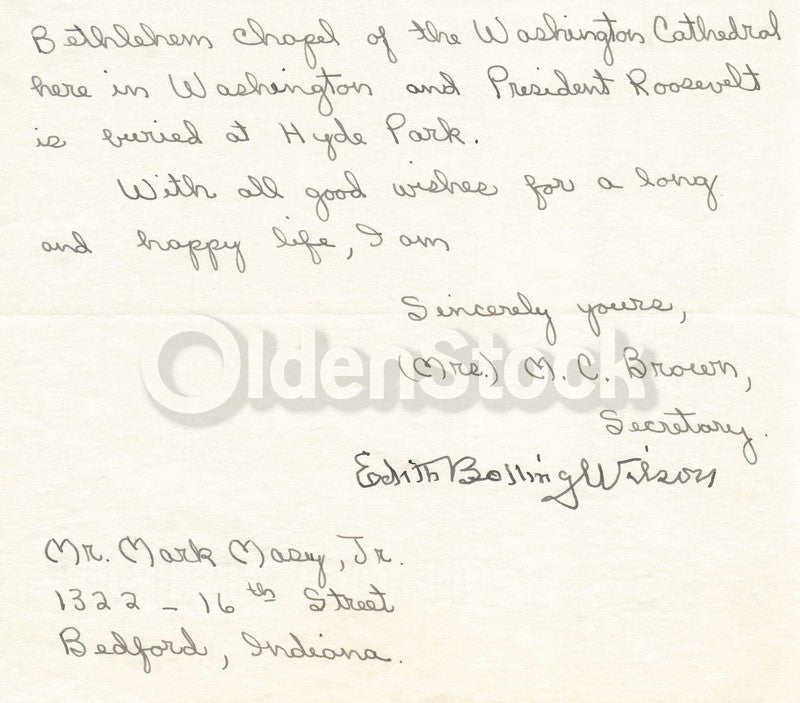 Bethlehem Chapel of the Washington Cathedral
here in Washington and President Roosevelt
is buried at Hyde Park.
With all good wishes for a long
and happy life, I am
Sincerely yours,
OldenStock
(Mrs.) M. C. Brown,
Secretary.
Edith Bolling Wilson
Mr. Mark Masey, Jr.
1322 - 16th Street
Bedford, Indiana.